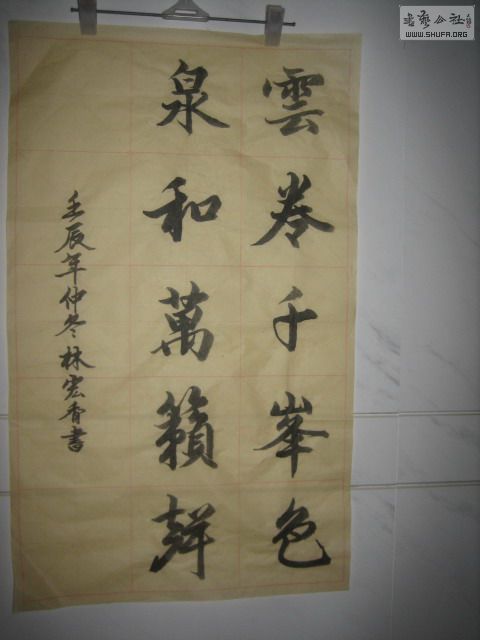 雲卷千峯色
泉和萬籟聲
壬辰年仲冬林宏香書
書藝公社
WWW.SHUFA.ORG